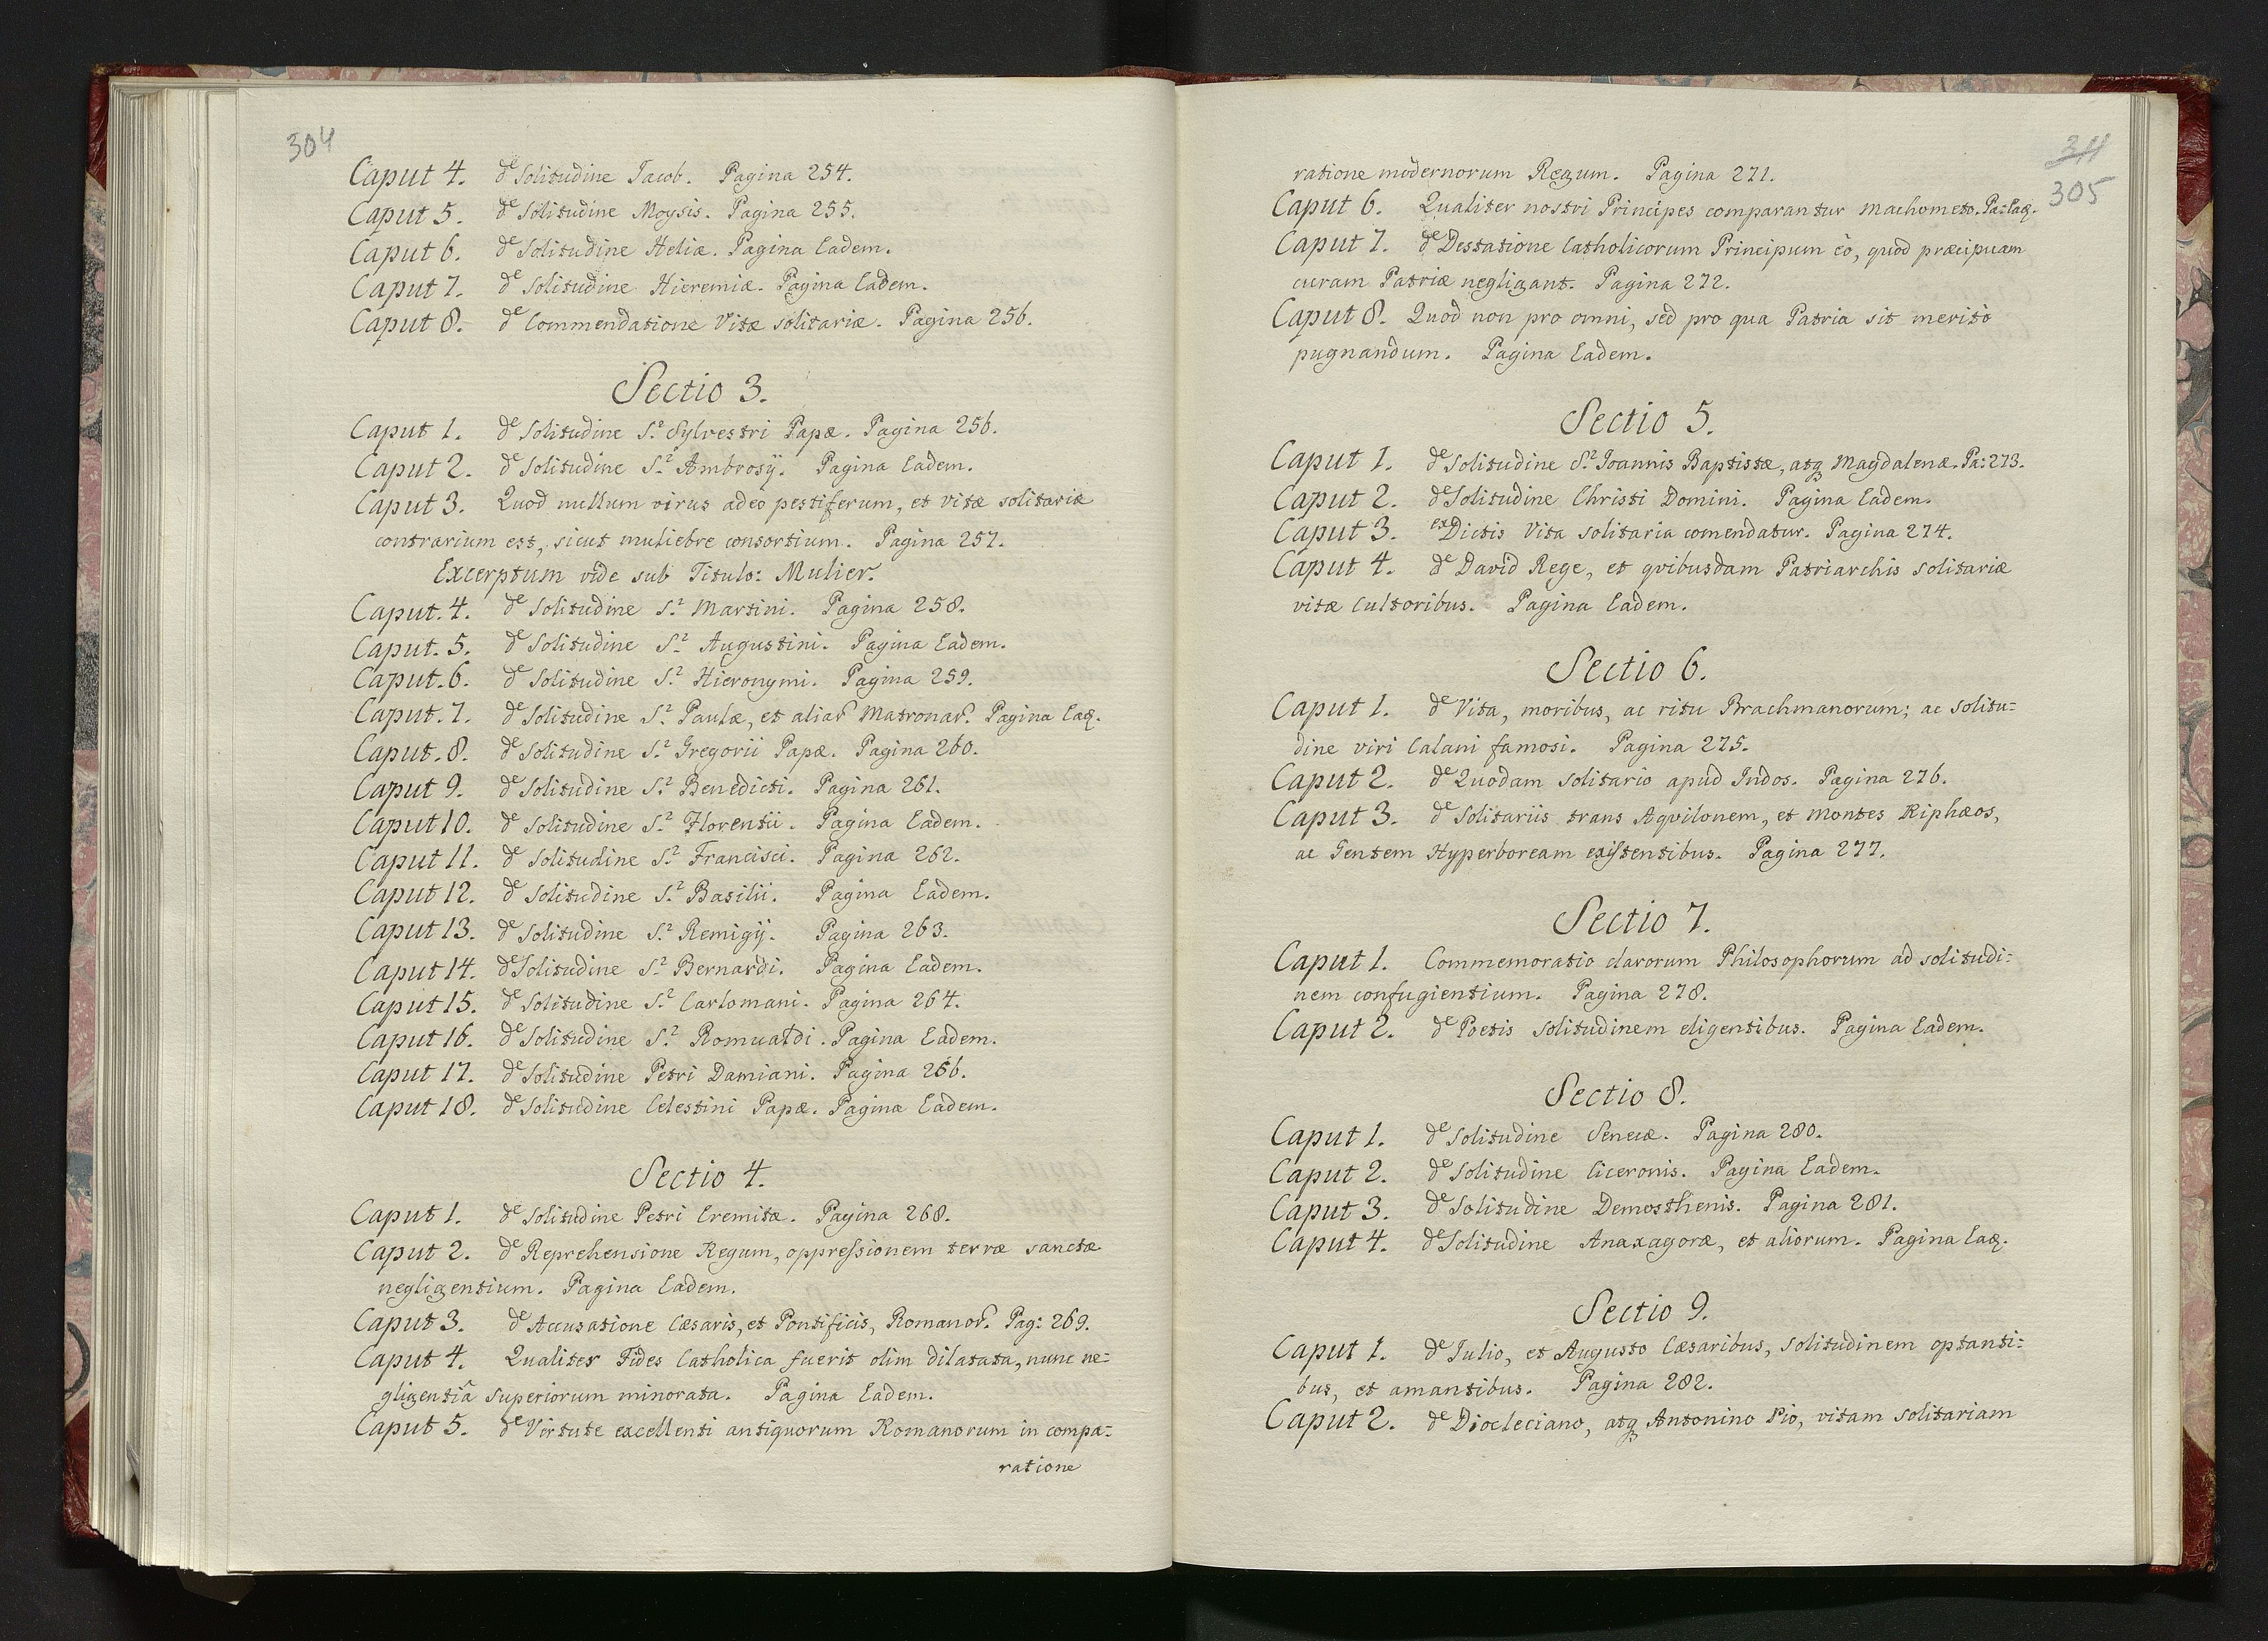 304
Caput 4. de Solitudine Iacob. Pagina 254.
Caput 5. de Solitudine Moysis. Pagina 255.
Caput 6. de Solitudine Heliæ. Pagina Eadem.
Caput 7. de Solitudine Hieremiæ. Pagina Eadem.
Caput 8. de Commendatione Vitæ solitariæ. Pagina 256.
Sectio 3.
Caput 1. de Solitudine S.i Sylvestri Papæ. Pagina 256.
Caput 2. de Solitudine S.i Ambrosÿ. Pagina Eadem.
Caput 3. Quod nullum virus adeo pestiferum, et vitæ solitariæ
contrarium est, sicut muliebre consortium. Pagina 257.
Excerptum vide sub Titulo: Mulier.
Caput. 4. de Solitudine S.i Martini. Pagina 258.
Caput. 5. de Solitudine S.i Augustini. Pagina Eadem.
Caput. 6. de Solitudine S.i Hieronymi. Pagina 259.
Caput. 7. de Solitudine S.æ Paulæ, et aliar. Matronar. Pagina Eaq.
Caput. 8. de Solitudine S.i Gregorii Papæ. Pagina 260.
Caput 9. de Solitudine S.i Benedicti. Pagina 261.
Caput 10. de Solitudine S.i Florentii. Pagina Eadem.
Caput 11. de Solitudine S.i Francisci. Pagina 262.
Caput 12. de Solitudine S.i Basilii. Pagina Eadem.
Caput 13. de Solitudine S.i Remigÿ. Pagina 263.
Caput 14. de Solitudine S.i Bernardi. Pagina Eadem.
Caput 15. de Solitudine S.i Carlomani. Pagina 264.
Caput 16. de Solitudine S.i Romualdi. Pagina Eadem.
Caput 17. de Solitudine Petri Damiani. Pagina 266.
Caput 18. de Solitudine Celestini Papæ. Pagina Eadem.
Sectio 4.
Caput 1. de Solitudine Petri Eremitæ. Pagina 268.
Caput 2. de Reprehensione Regum, oppressionem terræ sanctæ
negligentium. Pagina Eadem.
Caput 3. de Accusatione Cæsaris, et Pontificis, Romanor. Pag: 269.
Caput 4. Qualiter Fides Catholica fuerit olim dilatata, nunc ne=
gligentiâ superiorum minorata. Pagina Eadem.
Caput 5. de Virtute excellenti antiquorum Romanorum in compa=
ratione
311
305
ratione modernorum Regum. Pagina 271.
Caput 6. Qualiter nostri Principes comparantur Machometo. Pa: Eaq.
Caput 7. de Destatione Catholicorum Principum eò, quod præcipuam
curam Patriæ negligant. Pagina 272.
Caput 8. Quod non pro omni, sed pro qua Patria sit meritò
pugnandum. Pagina Eadem.
Sectio 5.
Caput 1. de Solitudine S.i Ioannis Baptistæ, atq Magdalenæ. Pa: 273.
Caput 2. de Solitudine Christi Domini. Pagina Eadem.
Caput 3. ex Dictis Vita solitaria comendatur. Pagina 274.
Caput 4. de David Rege, et qvibusdam Patriarchis solitariæ
vitæ Cultoribus. Pagina Eadem.
Sectio 6.
Caput 1. de Vita, moribus, ac ritu Brachmanorum; ac solitu=
dine viri Calani famosi. Pagina 275.
Caput 2. de Quodam solitario apud Indos. Pagina 276.
Caput 3. de Solitariis trans Aqvilonem, et Montes Riphæos,
ac Gentem Hyperboream existentibus. Pagina 277.
Sectio 7.
Caput 1. Commemoratio clarorum Philosophorum ad solitudi=
nem confugientium. Pagina 278.
Caput 2. de Poetis solitudinem eligentibus. Pagina Eadem.
Sectio 8.
Caput 1. de Solitudine Senecæ. Pagina 280.
Caput 2. de Solitudine Ciceronis. Pagina Eadem.
Caput 3. de Solitudine Demosthenis. Pagina 281.
Caput 4. de Solitudine Anaxagoræ, et aliorum. Pagina Eaq.
Sectio 9.
Caput 1. de Iulio, et Augusto Cæsaribus, solitudinem optanti=
bus, et amantibus. Pagina 282.
Caput 2. de Diocleciano, atq Antonino Pio, vitam solitariam